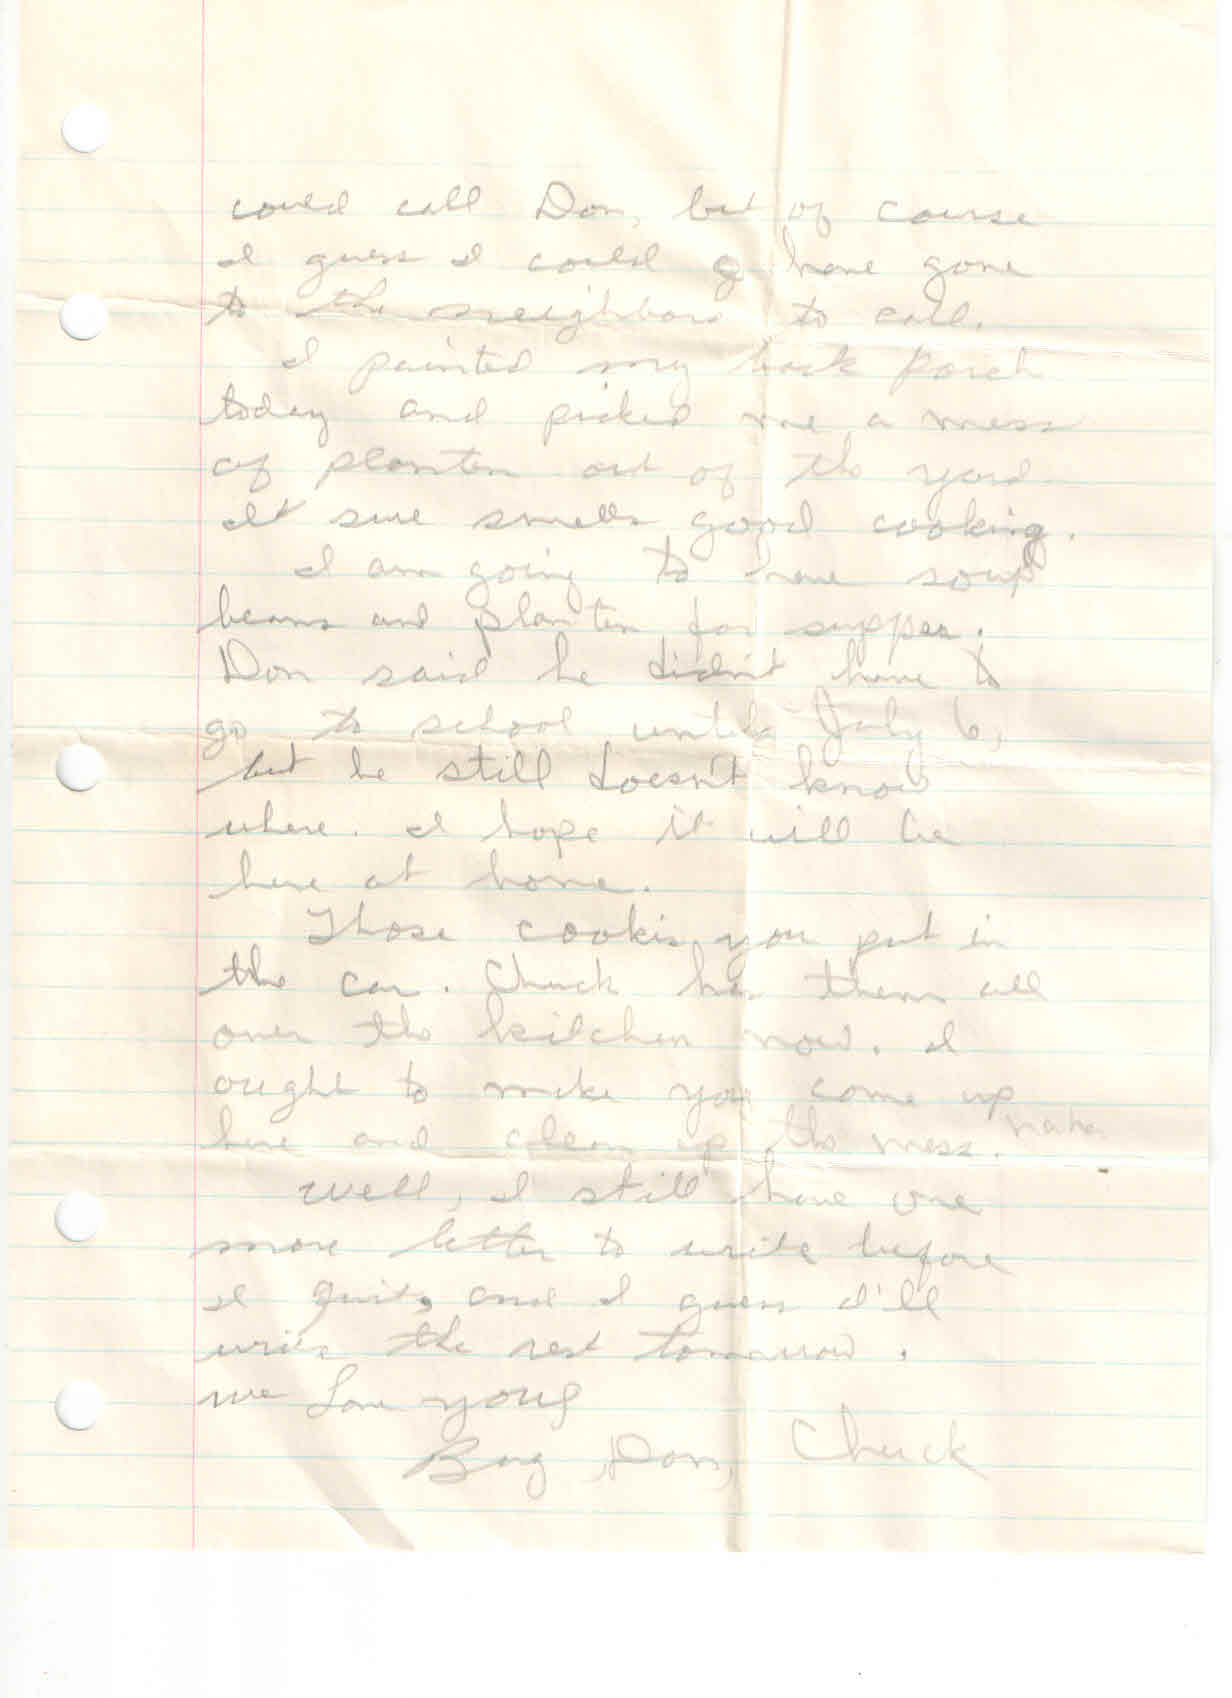 could call Don, but of course
I guess I could g have gone
to the neighbors to call.
I painted my back porch
today and picked me a mess
of planten out of the yard
It sure smells good cooking.
I am going to have soup
beans and planten for supper.
Don said he didn't have to
go to school until July 6,
but he still doesn't know
where. I hope it will be
here at home.
Those cookis you put in
the car. Chuck has them all
over the kitchen now. I
ought to make you come up
here and clean up the mess. haha
Well, I still have one
more letter to write before
I quit, and I guess I'll
write the rest tomorrow.
We Love you
Don, Chuck